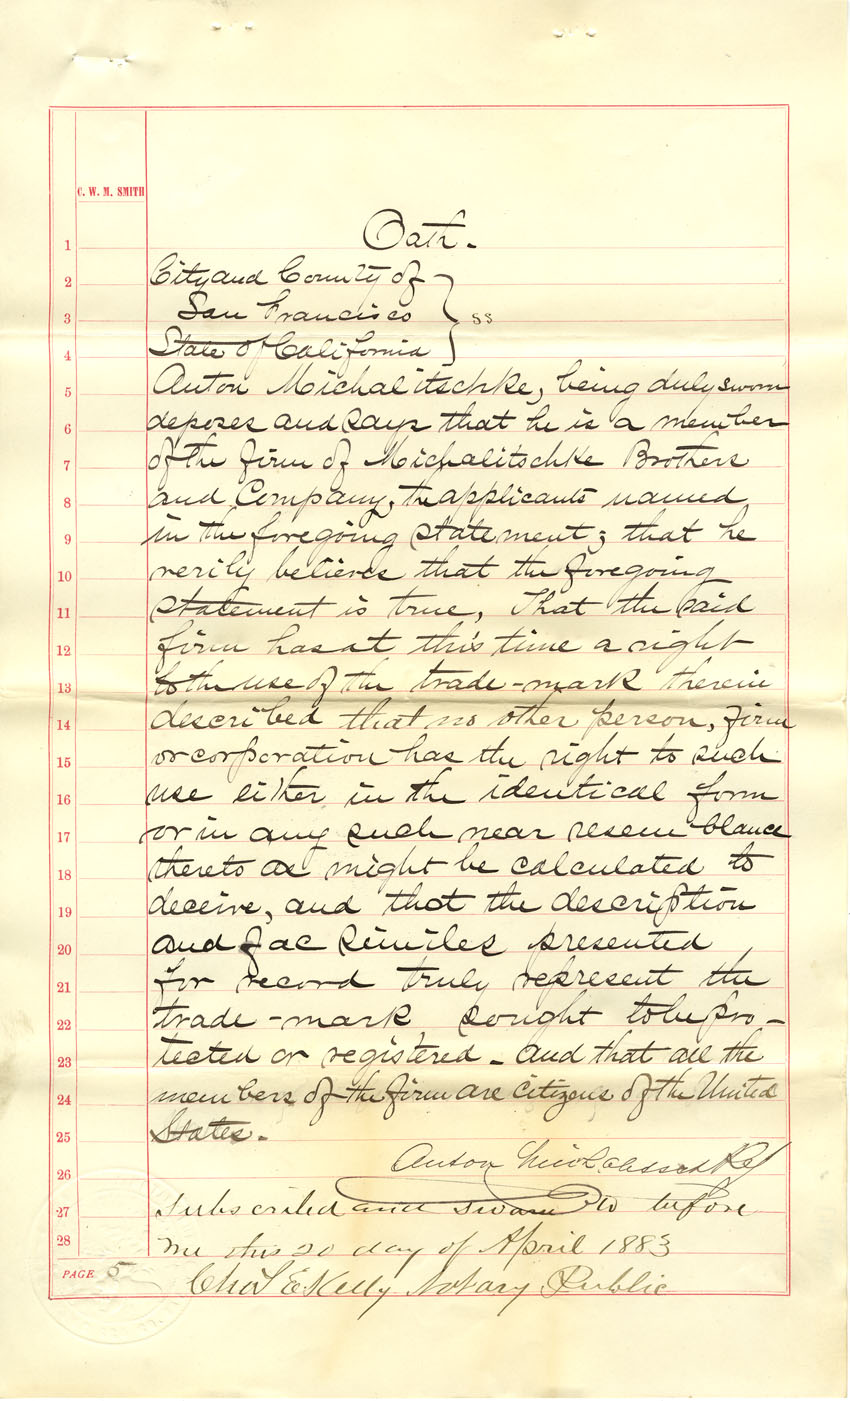 C. W. M. SMITH
Oath.
1
2 City and County of
3 San Francisco } ss
4 State of California
5 Anton Michalitschke, being duly sworn
6 deposes and says that he is a member
7 of the firm of Michalitschke Brothers
8 and Company, the applicants named
9 in the foregoing statement; that he
10 verily believes that the foregoing
11 statement is true, That the said
12 firm has at this time a right
13 to the use of the trade-mark therein
14 described that no other person, firm
15 or corporation has the right to such
16 use either in the identical form
17 or in any such near resemblance
18 thereto as might be calculated to
19 deceive, and that the description
20 and fac similes presented
21 for record truly represent the
22 trade-mark sought to be pro-
23 tected or registered - and that all the
24 members of the firm are citizens of the United
25 States.
26 Anton
27 Subscribed and sworn to before
28 me this 20 day of April 1883
PAGE 5 Chas E Kelly Notary Public